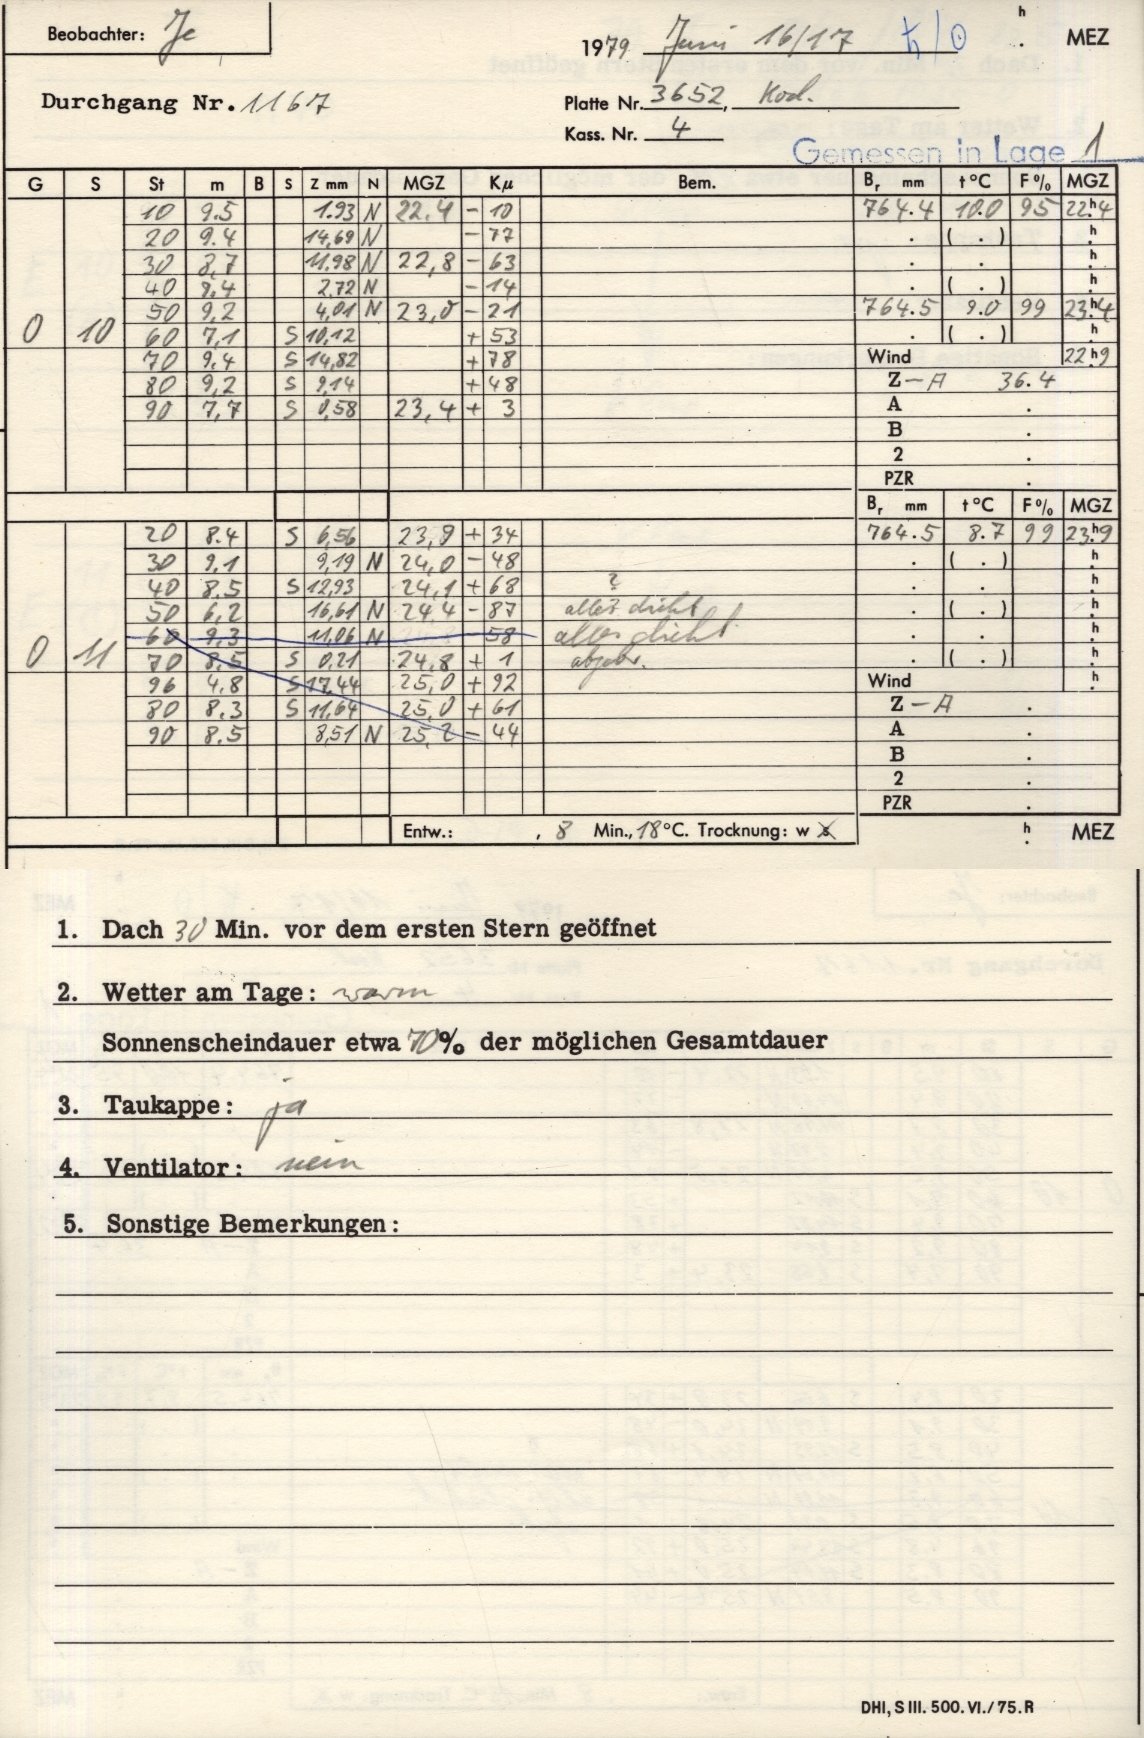 Beobachter: Je
1979 Juni 16/17 ♄/☉ h . MEZ
Durchgang Nr. 1167
Platte Nr. 3652, Kod.
Kass. Nr. 4
Gemessen in Lage 1
G S St m B S Z mm N MGZ Kμ Bem. Br mm t°C F% MGZ
10 9.5 1.93 N 22.4 - 10 764.4 10.0 95 22h4
20 9.4 14,69 N - 77 . ( . ) h
30 8,7 11.98 N 22,8 - 63 . . h
40 9.4 2.72 N - 14 . ( . ) h
50 9,2 4,01 N 23,0 - 21 764.5 9.0 99 23h4
0 10 60 7,1 S 10,12 + 53 . ( . ) h
70 9.4 S 14,82 + 78 Wind 22h9
80 9,2 S 9,14 + 48 Z - A 36.4
90 7,7 S 0,58 23,4 + 3 A .
B .
2 .
PZR .
Br mm t°C F% MGZ
20 8.4 S 6,56 23,8 + 34 764.5 8.7 99 23h9
30 9,1 9,19 N 24,0 - 48 . ( . ) h
40 8.5 S 12,93 24,1 + 68 ? . . h
50 6,2 16,61 N 24,4 - 87 alles dicht . ( . ) h
60 9,3 11,06 N - 58 alles dicht . . h
0 11 70 8,5 S 0,21 24,8 + 1 abgebr. . ( . ) h
96 4,8 S 17,44 25,0 + 92 Wind h
80 8.3 S 11,64 25,0 + 61 Z - A .
90 8.5 8,51 N 25,2 - 44 A .
B .
2 .
PZR .
Entw.: , 8 Min., 18°C. Trocknung: w s h . MEZ
1. Dach 30 Min. vor dem ersten Stern geöffnet
2. Wetter am Tage: warm
Sonnenscheindauer etwa 70% der möglichen Gesamtdauer
3. Taukappe: ja
4. Ventilator: nein
5. Sonstige Bemerkungen:
DHI, S III. 500. VI./75. R